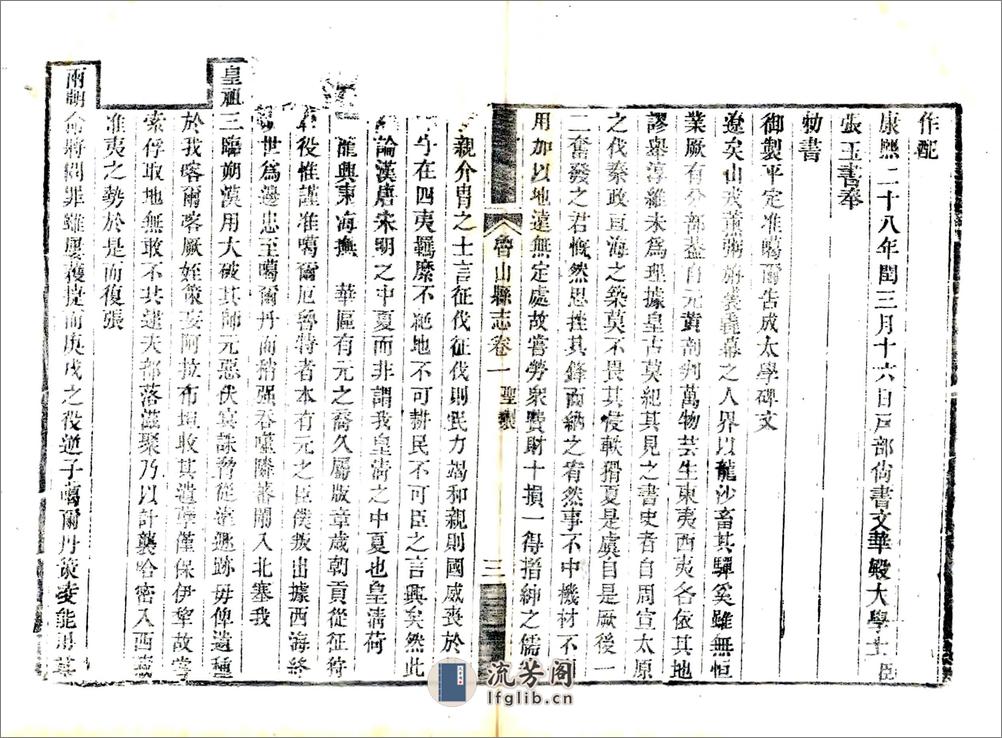 作配
康熙二十八年閏三月十六日戸部尚書文華殿大學士臣
張玉書奉
勅書
御製平定准噶爾告成太學碑文
遼矣山戎薰粥旃裘毳幕之人界以龍沙畜其驒奚雖無恒
業厥有分部蓋自元黄剖判萬物芸生東夷西夷各依其地
謬舉淳維未為理據皇古莫紀其見之書史者自周宣太原
之伐秦政亘海之築莫不畏其侵軼猾夏是虞自是厥後一
二奮發之君慨然思挫其鋒而納之宥然事不中機材不
用加以地遠無定處故嘗勞衆費財十損一得搢紳之儒
魯山縣志卷一 聖製 三
親介冑之士言征伐征伐則民力竭和親則國威喪於
在四夷羈縻不絶地不可耕民不可臣之言興矣然此
論漢唐宋明之中夏而非謂我皇清之中夏也皇清荷
龍興東海撫 華區有元之裔久屬版章歲朝貢從征狩
役惟謹准噶爾厄魯特者本有元之臣僕叛出據西海終
世為邊患至噶爾丹而稍强吞噬隣藩闌入北塞我
皇祖三臨朔漠用大破其師元惡伏冥誅脅從遠遁跡毋俾遺種
於我喀爾喀厥姪策妄阿拉布坦收其遺孽僅保伊犂故嘗
索俘取地無敢不共逮夫部落滋聚乃以計襲哈密入西藏
准夷之勢於是而復張
兩朝命將問罪雖屢獲捷而庚戌之役逆子噶爾丹策凌能用其
流芳阁
lfglib.cn